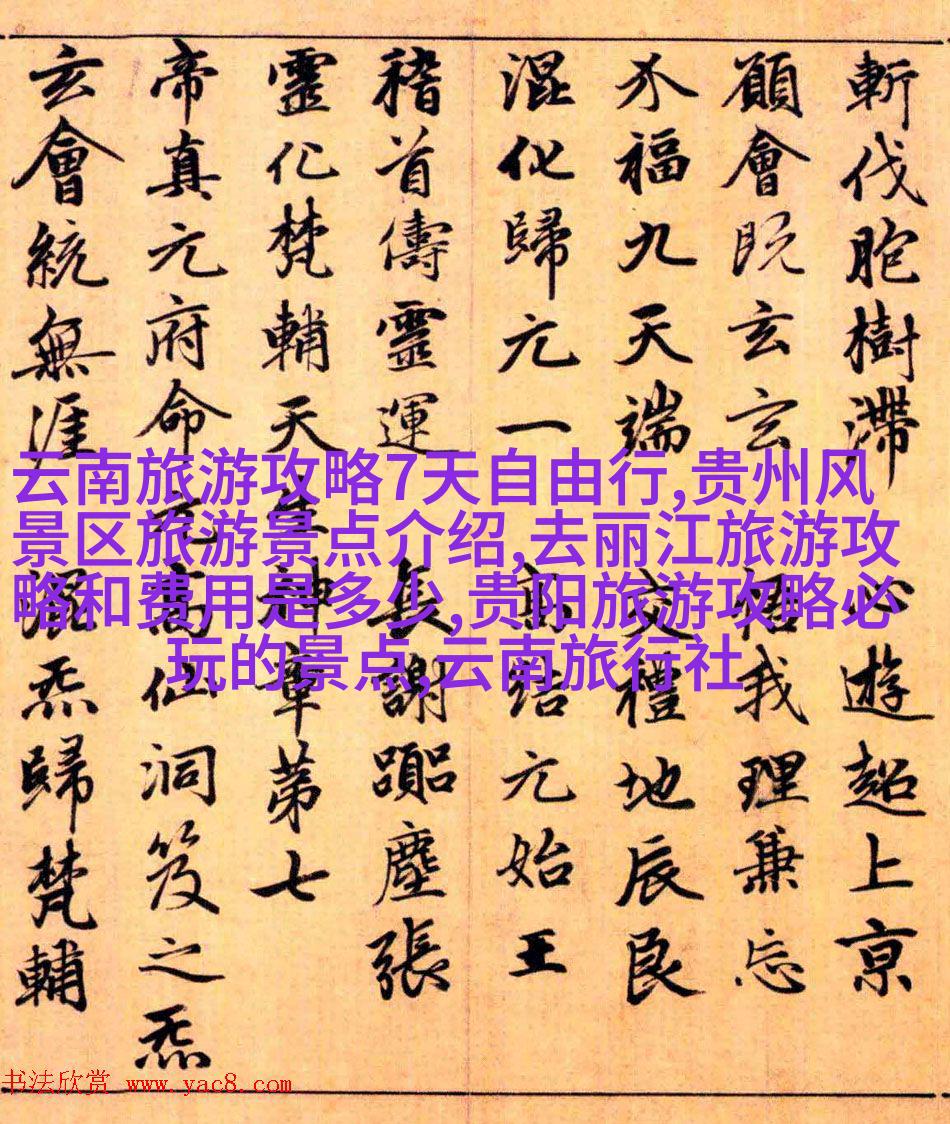 斬伐胞樹滯 心遊超上京
願會既玄玄 悟我理兼忘
介福九天端 交禮地辰良
混化歸元一 高結元始王
稽首儔靈運 長謝躡塵張
靈化梵輔天生神章第七
帝真元府命元高仙洞笈之炁
玄會統無涯混炁歸梵輔
云南旅游攻略7天自由行,贵州风
景区旅游景点介绍,去丽江旅游攻
略和费用是多少,贵阳旅游攻略必
玩的景点,云南旅行社
书法欣赏 www.yac8.com